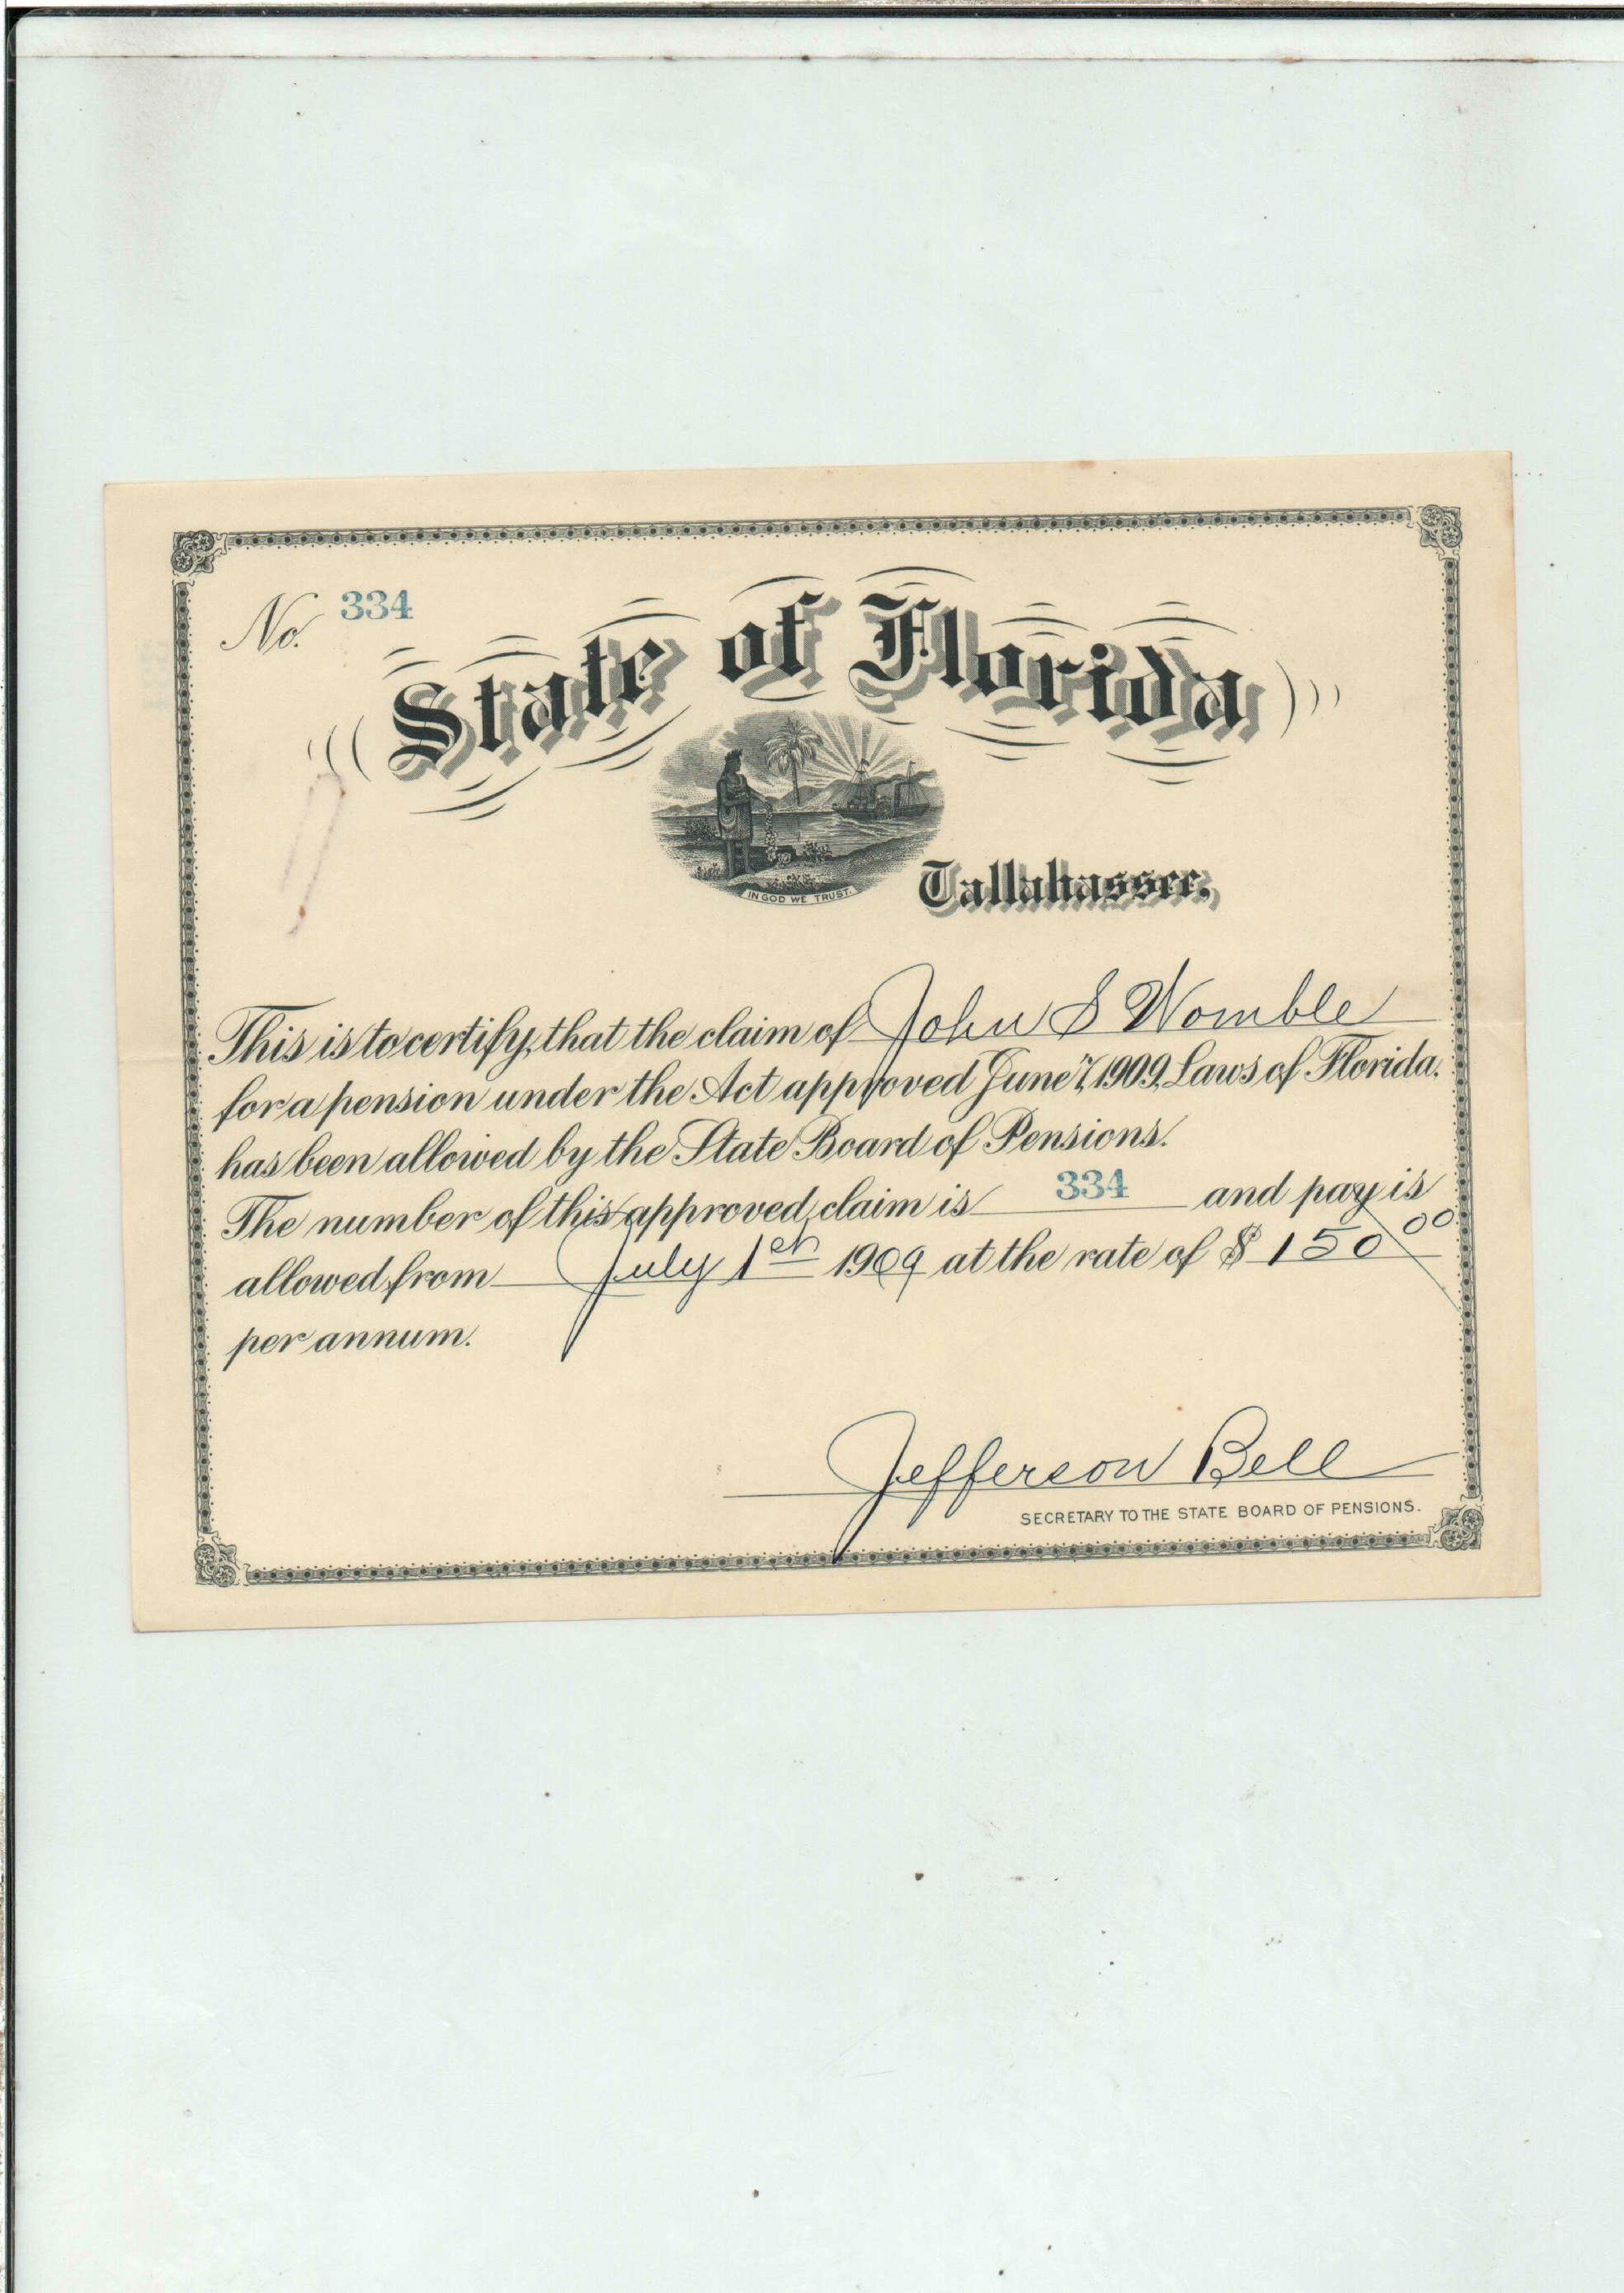 No. 334
State of Florida
IN GOD WE TRUST.
Tallahassee,
This is to certify, that the claim of John S Womble
for a pension under the Act approved June 7, 1909, Laws of Florida,
has been allowed by the State Board of Pensions.
The number of this approved claim is 334 and pay is
allowed from July 1st 1909 at the rate of $ 150 00
per annum.
Jefferson Bell
SECRETARY TO THE STATE BOARD OF PENSIONS.